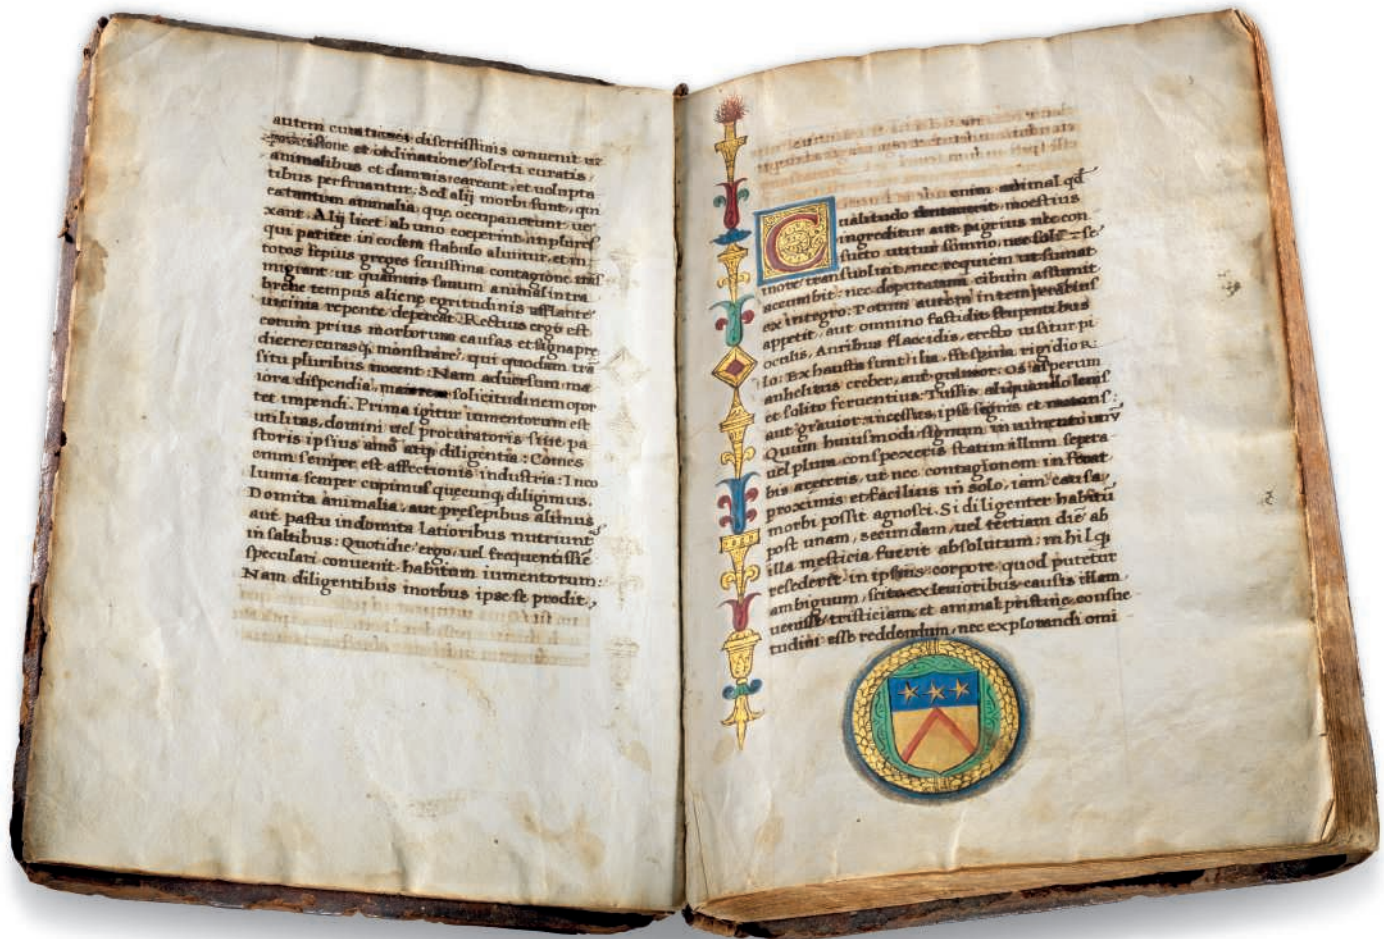 autem curationes disertissimis convenit ut
provisione et ordinatione solerti curatis
animalibus et damnis careant, et uolupta
tibus perfruantur. Sed alij morbi sunt, qui
eatantum animalia, que occupauerunt ue
xant. Alij licet ab uno coeperint in plures
qui pariter in eodem stabulo aluntur, et in
totos sepius greges seuissima contagione trãs
migrant: ut quamuis sanum animal intra
breue tempus aliene egritudinis afflante
uicinia repente depereat. Rectius ergo est
eorum prius morborum causas et signa pre
dicere, curasq; monstrare, qui quodam trã
situ pluribus nocent: Nam aduersum ma
iora dispendia, maiorem solicitudinem opor
tet impendi. Prima igitur iumentorum est
utilitas, domini uel procuratoris siue pa
storis ipsius diligentia: Comes
enim semper est affectionis industria: Inco
lumia semper cupimus quecunq; diligimus.
Domita animalia, aut presepibus alimus
aut pastu indomita latioribus nutriunt
in saltibus: Quotidie ergo, uel frequentissiẽ
speculari conuenit habitum iumentorum:
Nam diligentibus morbus ipse se prodit,
C
enim animal qd
ualitudo temtauerit, moestius
ingreditur aut pigrius nec con
sueto utitur somno, nec solito se
more transuoluit, nec requiem ut sumat
accumbit: nec deputatum cibum assumit
ex integro: Potum autem intemperatius
appetit, aut omnino fastidit stupentibus
oculis, Auribus flaccidis, erecto uisitur pi
lo: Exhausta sunt ilia, fit spina rigidior:
anhelitus creber, aut grauior: Os asperum
et solito feruentius: Tussis aliquando leuis
aut grauior incessus, ipse segnis et nutans:
Quum huiusmodi signum in iumento unũ
uel plura conspexeris statim illum sepera
bis a ceteris, ut nec contagionem inferat
proximis et facilius in solo, iam causa
morbi possit agnosci. Si diligenter habitũ
post unam, secundam, uel tertiam diẽ ab
illa mesticia fuerit absolutum: nihilq;
resederit in ipsius corpore quod putetur
ambiguum, scito ex leuioribus causis illam
uenisse tristiciam, et animal pristine consue
tudini esse reddendum, nec explorandi omi